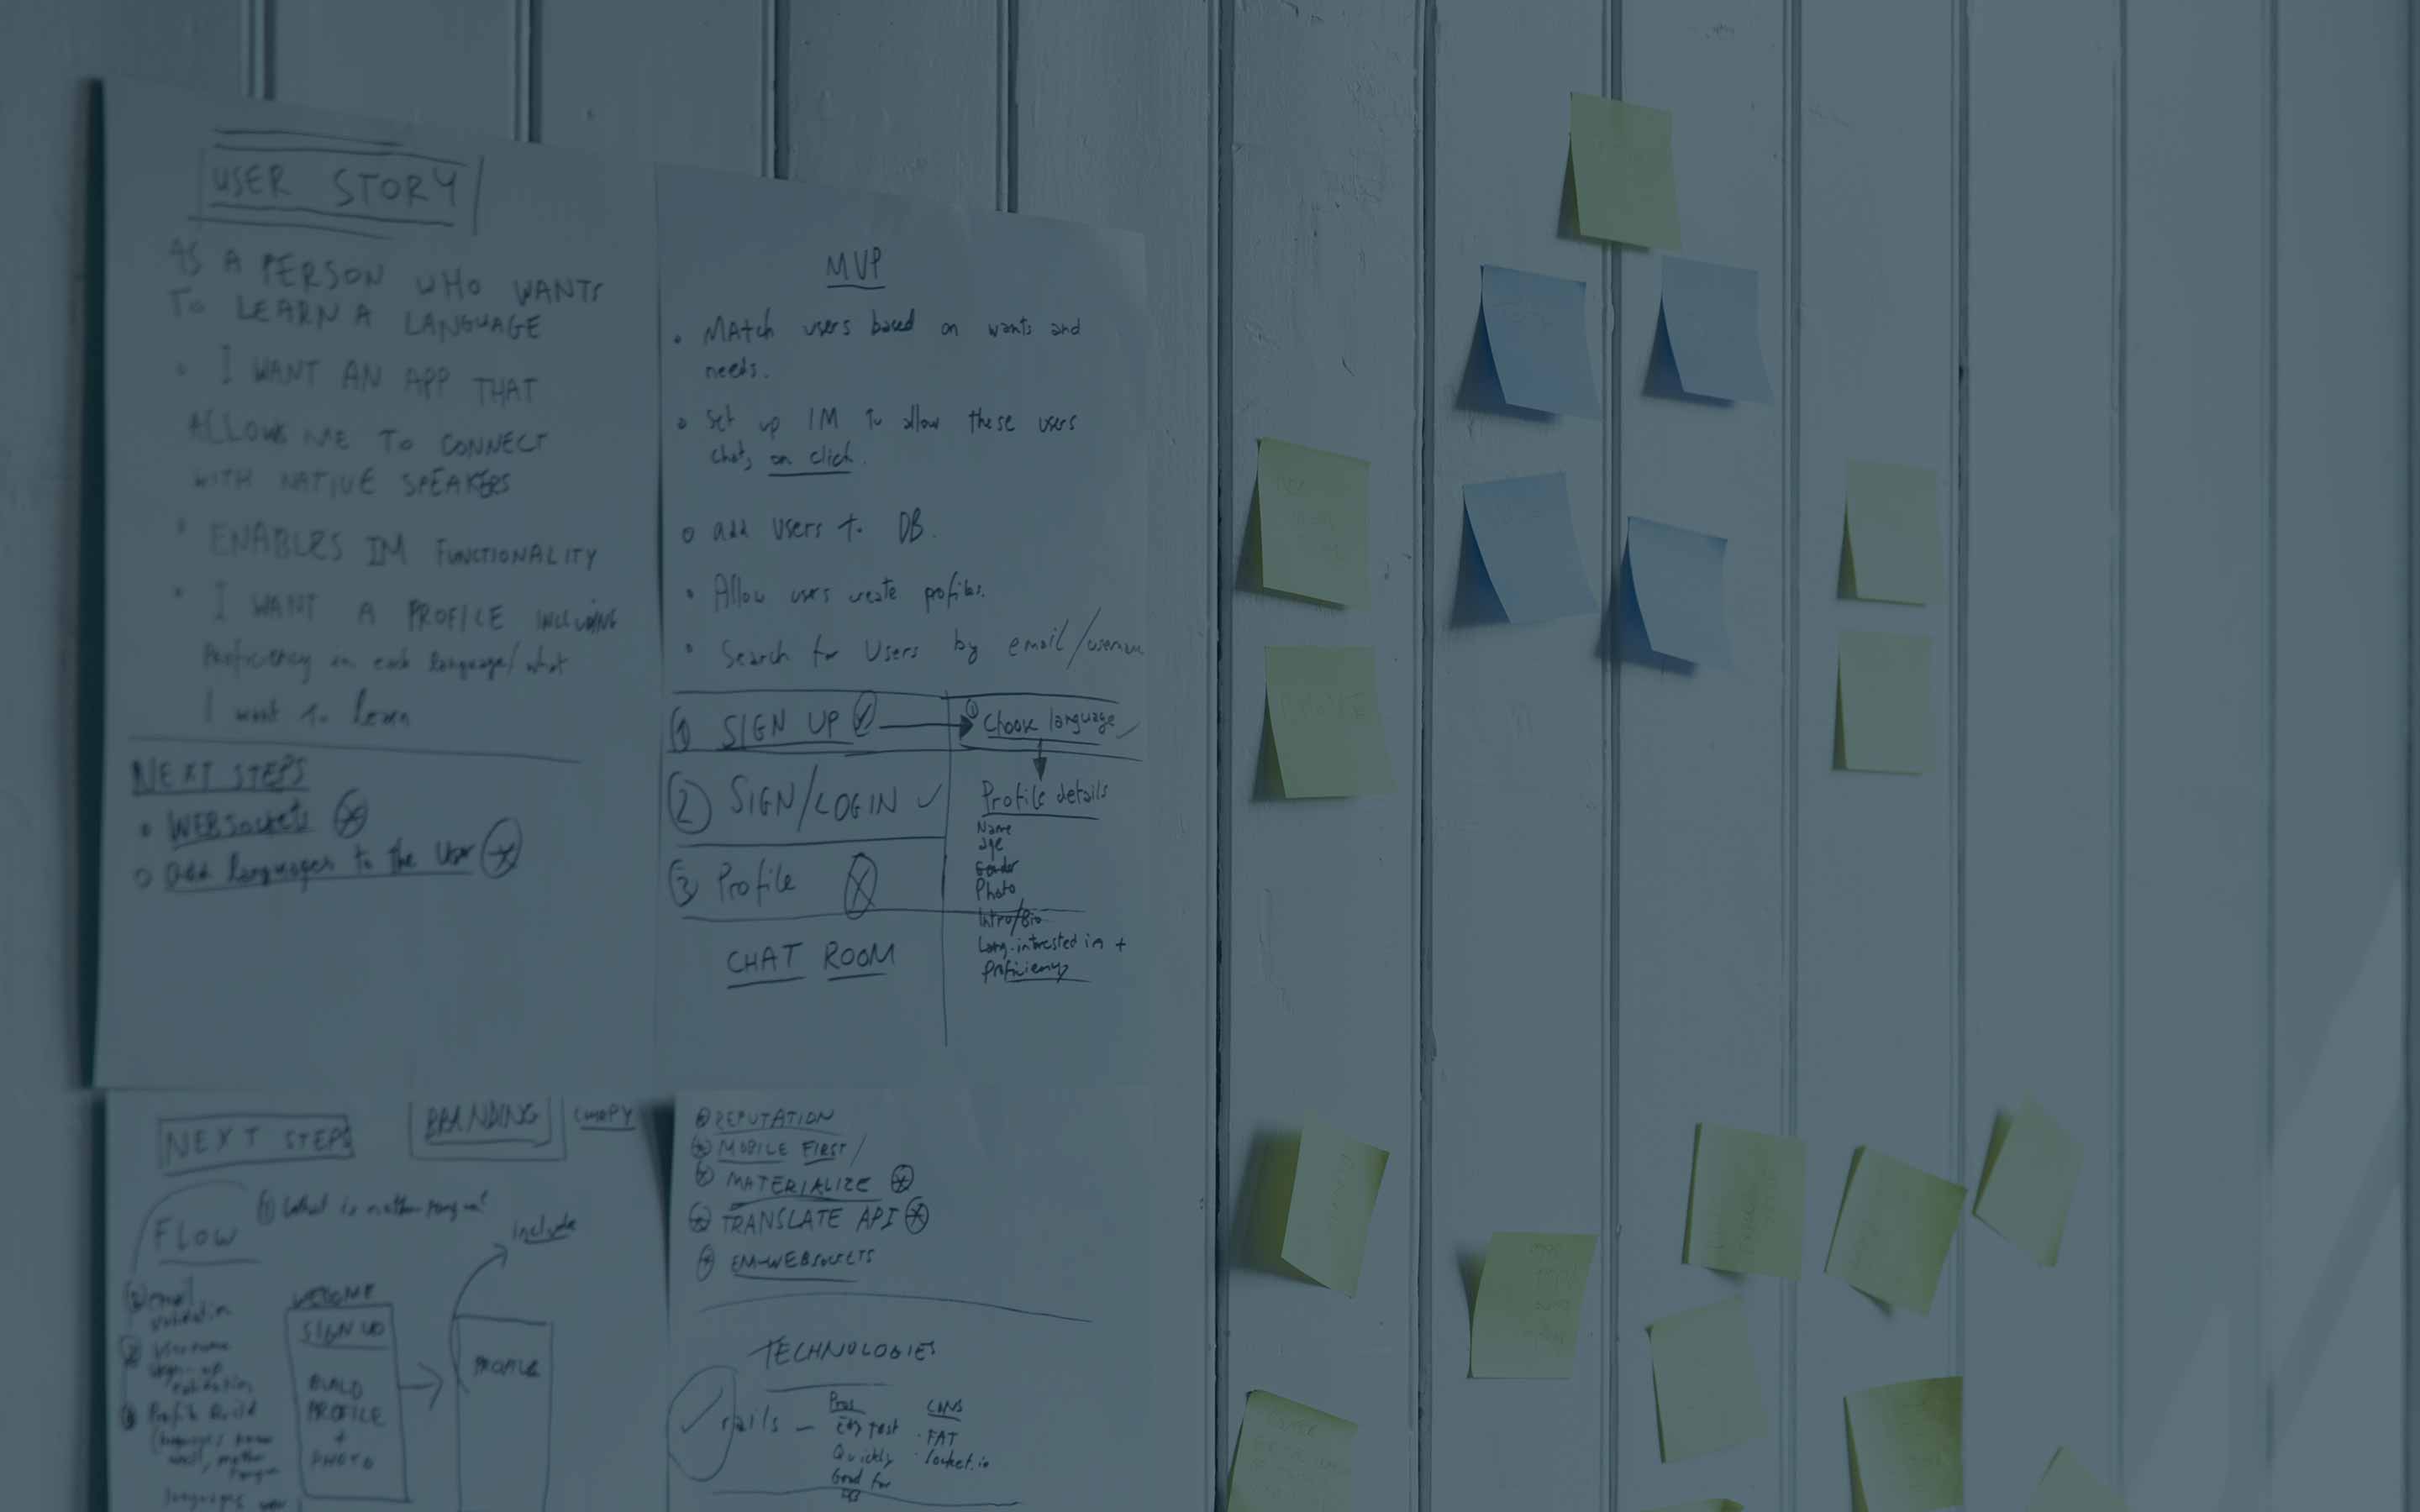 USER STORY
AS A PERSON WHO WANTS
TO LEARN A LANGUAGE
• I WANT AN APP THAT
ALLOWS ME TO CONNECT
WITH NATIVE SPEAKERS
• ENABLES IM FUNCTIONALITY
• I WANT A PROFILE INCLUDING
Proficiency in each language/what
I want to learn
NEXT STEPS
• WEBSockets
○ Add languages to the User
MVP
• MAtch users based on wants and
needs.
• Set up IM to allow these users
chat, on click.
○ add users to DB.
• Allow users create profiles.
• Search for Users by email/
① SIGN UP
② SIGN/LOGIN ✓
③ Profile
CHAT ROOM
① Choose language ✓
Profile details
Name
age
Gender
Photo
Intro/Bio
Lang. interested in +
proficiency
NEXT STEPS
BRANDING
FLOW
① What is mother tongue?
include
email
validation
Username
sign-up
validation
Profile Build
WELCOME
SIGN UP
BUILD
PROFILE
+
PHOTO
PROFILE
REPUTATION
MOBILE FIRST
MATERIALIZE
TRANSLATE API
EM-WEBSOCKETS
TECHNOLOGIES
✓ rails –
Pros
Quickly
Good for
CONS
• FAT
• Socket.io